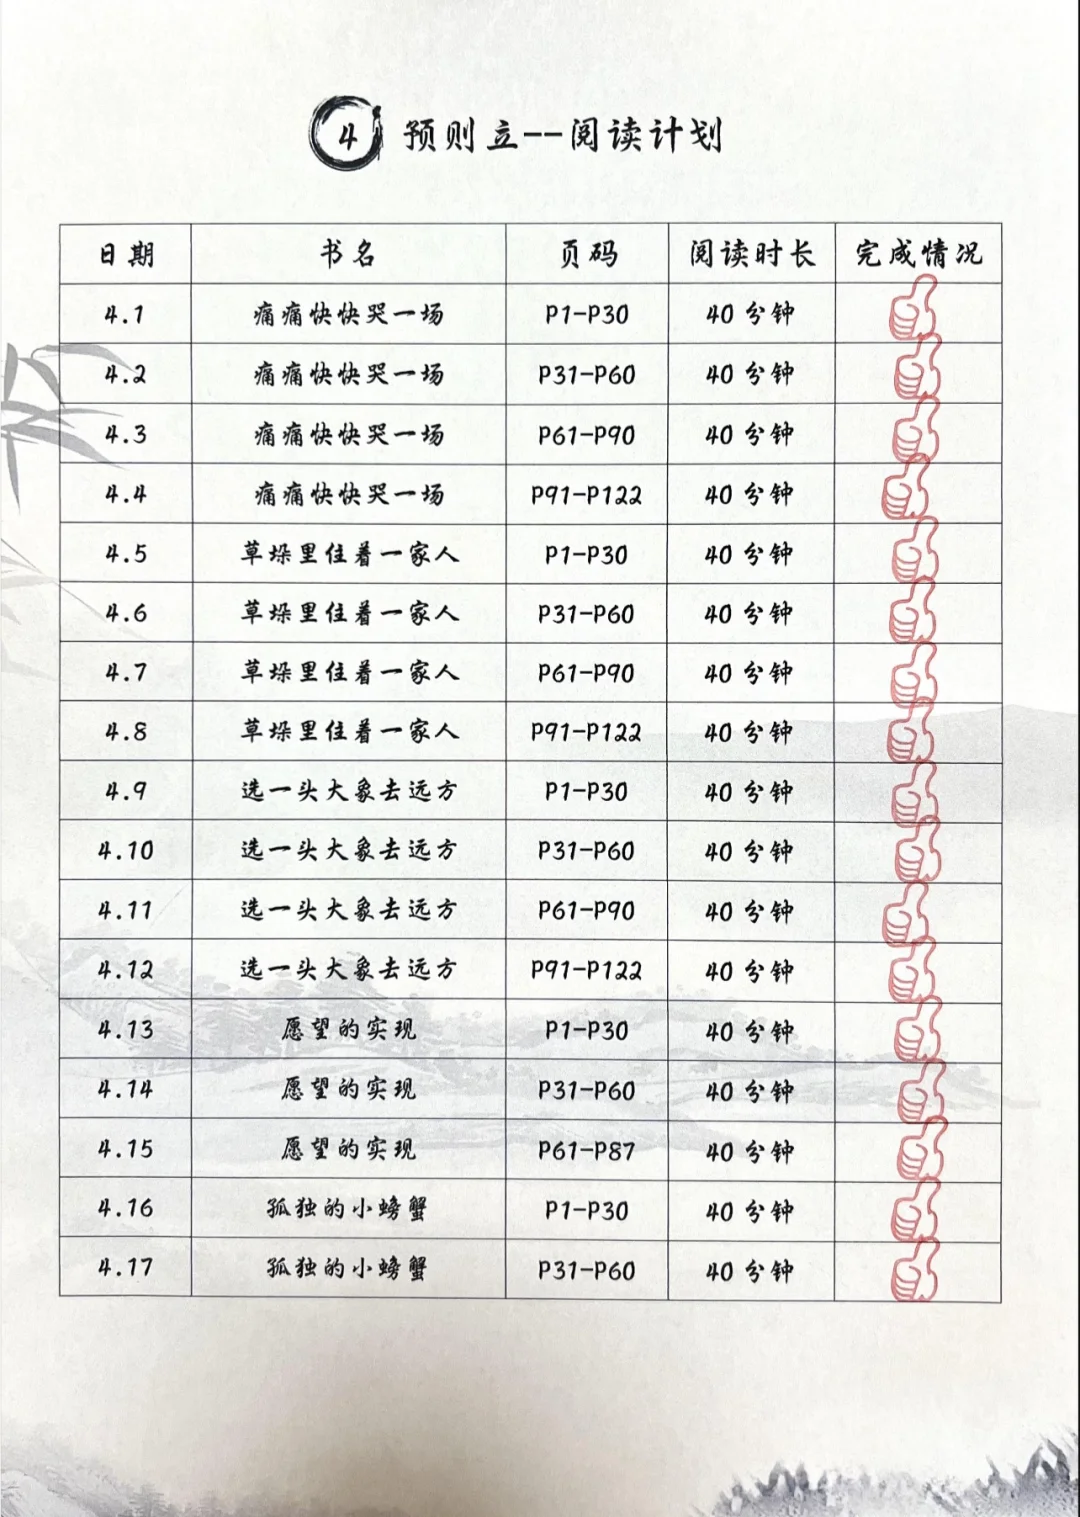 4 预则立--阅读计划
日期 书名 页码 阅读时长 完成情况
4.1 痛痛快快哭一场 P1-P30 40 分钟
4.2 痛痛快快哭一场 P31-P60 40 分钟
4.3 痛痛快快哭一场 P61-P90 40 分钟
4.4 痛痛快快哭一场 P91-P122 40 分钟
4.5 草垛里住着一家人 P1-P30 40 分钟
4.6 草垛里住着一家人 P31-P60 40 分钟
4.7 草垛里住着一家人 P61-P90 40 分钟
4.8 草垛里住着一家人 P91-P122 40 分钟
4.9 选一头大象去远方 P1-P30 40 分钟
4.10 选一头大象去远方 P31-P60 40 分钟
4.11 选一头大象去远方 P61-P90 40 分钟
4.12 选一头大象去远方 P91-P122 40 分钟
4.13 愿望的实现 P1-P30 40 分钟
4.14 愿望的实现 P31-P60 40 分钟
4.15 愿望的实现 P61-P87 40 分钟
4.16 孤独的小螃蟹 P1-P30 40 分钟
4.17 孤独的小螃蟹 P31-P60 40 分钟